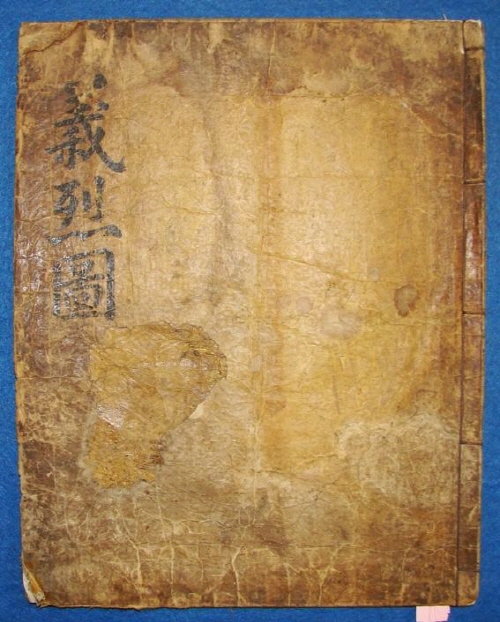 義烈圖